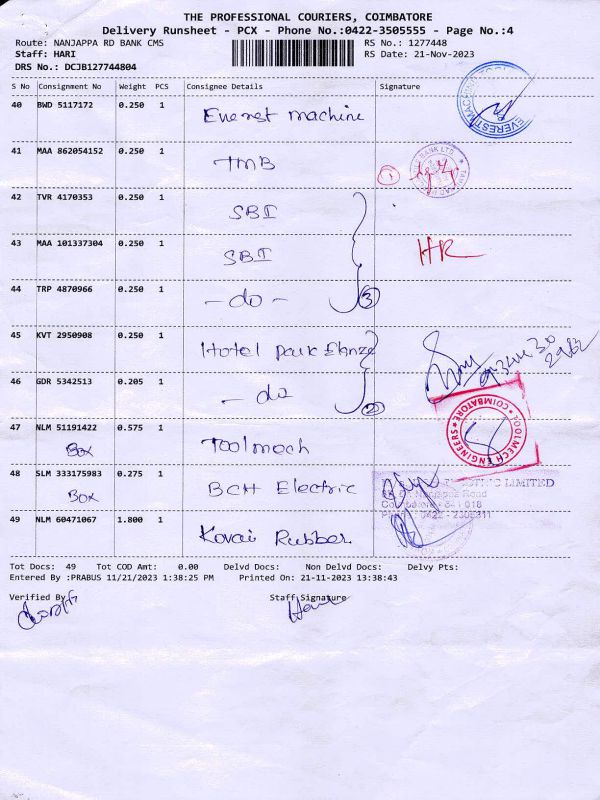 THE PROFESSIONAL COURIERS, COIMBATORE
Delivery Runsheet - PCX - Phone No.:0422-3505555 - Page No.:4
Route: NANJAPPA RD BANK CMS RS No.: 1277448
Staff: HARI RS Date: 21-Nov-2023
DRS No.: DCJB127744804
S No Consignment No Weight PCS Consignee Details Signature
40 BWD 5117172 0.250 1 Everest machine
EVEREST MACHINE TOOL
41 MAA 862054152 0.250 1 TMB
1
BANK LTD.
42 TVR 4170353 0.250 1 SBI
43 MAA 101337304 0.250 1 SBI HR
44 TRP 4870966 0.250 1 - do - 3
45 KVT 2950908 0.250 1 Hotel Park Elanza
46 GDR 5342513 0.205 1 - do 2
47 NLM 51191422 0.575 1 Toolmech
Box
TOOLMECH ENGINEERS COIMBATORE
48 SLM 333175983 0.275 1 BCH Electric
Box
ELECTRIC LIMITED
Nanjappa Road
Coimbatore - 641 018
Phone : 0422 - 2305311
49 NLM 60471067 1.800 1 Kovai Rubber
Tot Docs: 49 Tot COD Amt: 0.00 Delvd Docs: Non Delvd Docs: Delvy Pts:
Entered By :PRABUS 11/21/2023 1:38:25 PM Printed On: 21-11-2023 13:38:43
Verified By Staff Signature